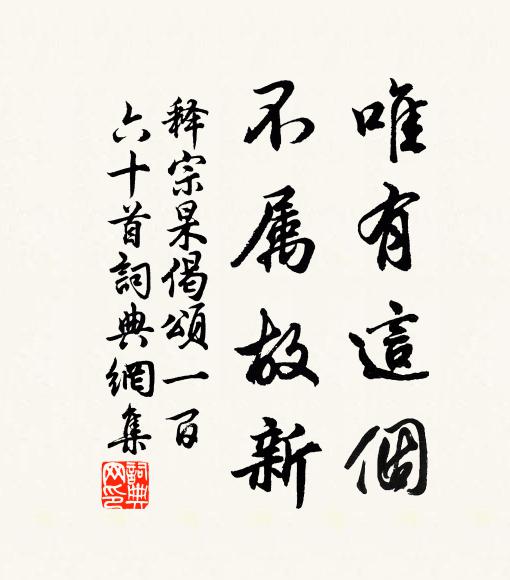 唯有這個
不属故新
释宗杲偈頌一百
六十首詞典網集
詞典网印